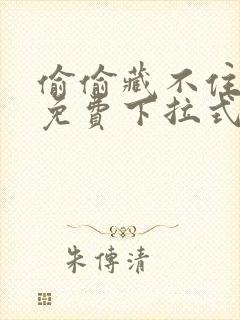 偷偷藏不住
免費下拉式
朱傳清